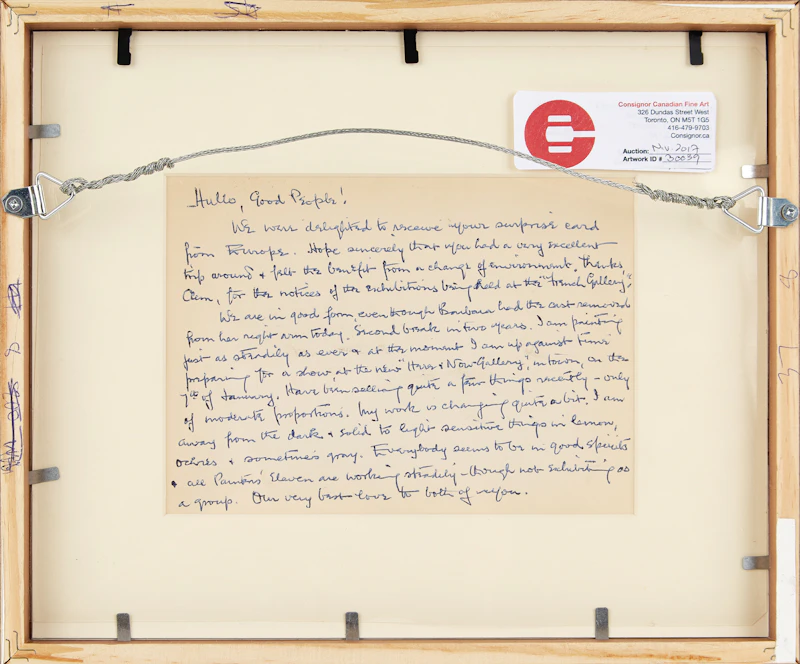 Consignor Canadian Fine Art
326 Dundas Street West
Toronto, ON M5T 1G5
416-479-9703
Consignor.ca
Auction: Nov. 2017
Artwork ID # 30039
Hullo, Good People!
We were delighted to receive your surprise card
from Europe. Hope sincerely that you had a very excellent
trip around & felt the benefit from a change of environment. Thanks
Clem, for the notices of the exhibitions being held at the "French Gallery".
We are in good form, even though Barbara had the cast removed
from her right arm today. Second break in two years. I am painting
just as steadily as ever & at the moment I am up against time
preparing for a show at the new "Here & Now Gallery", in town, on the
7th of January. Have been selling quite a few things recently – only
of moderate proportions. My work is changing quite a bit. I am
away from the dark & solid to light sensitive things in lemon,
ochres & sometimes gray. Everybody seems to be in good spirits
& all Painters' Eleven are working steadily – though not exhibiting as
a group. Our very best love to both of you.